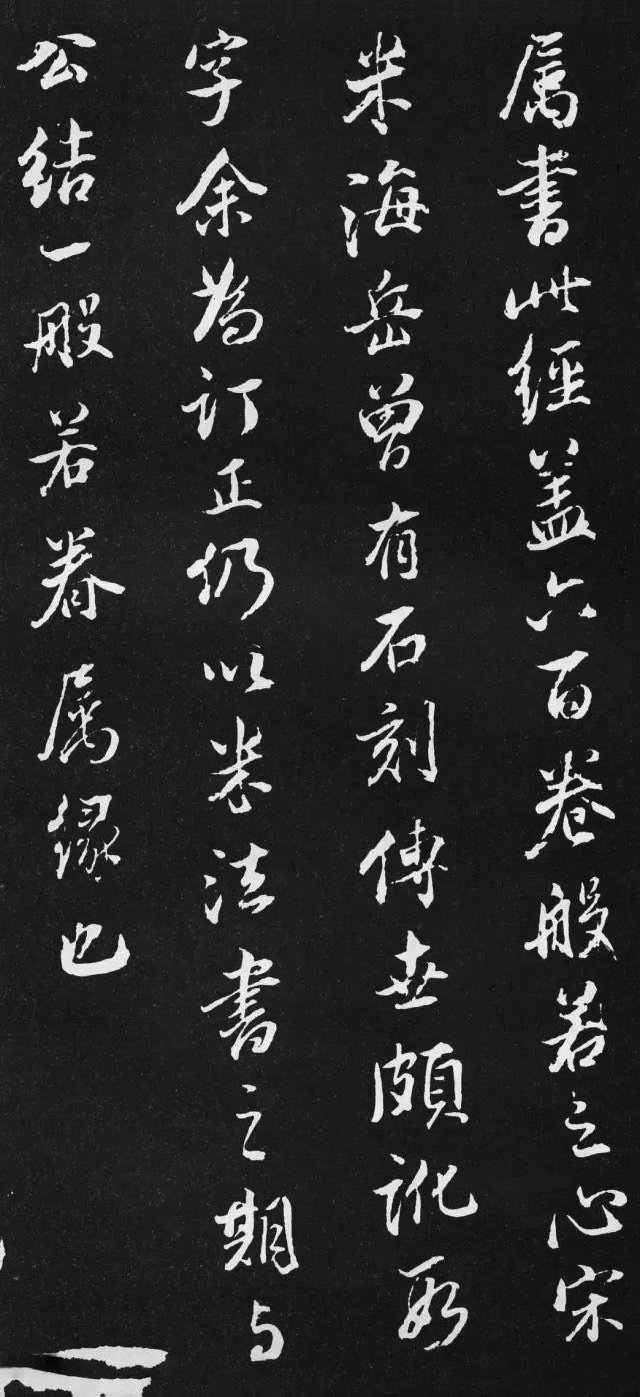 属書此經盖六百卷般若之心宋
米海岳曾有石刻傳世頗訛數
字余為訂正仍以法書之期与
公結一般若眷属缘也